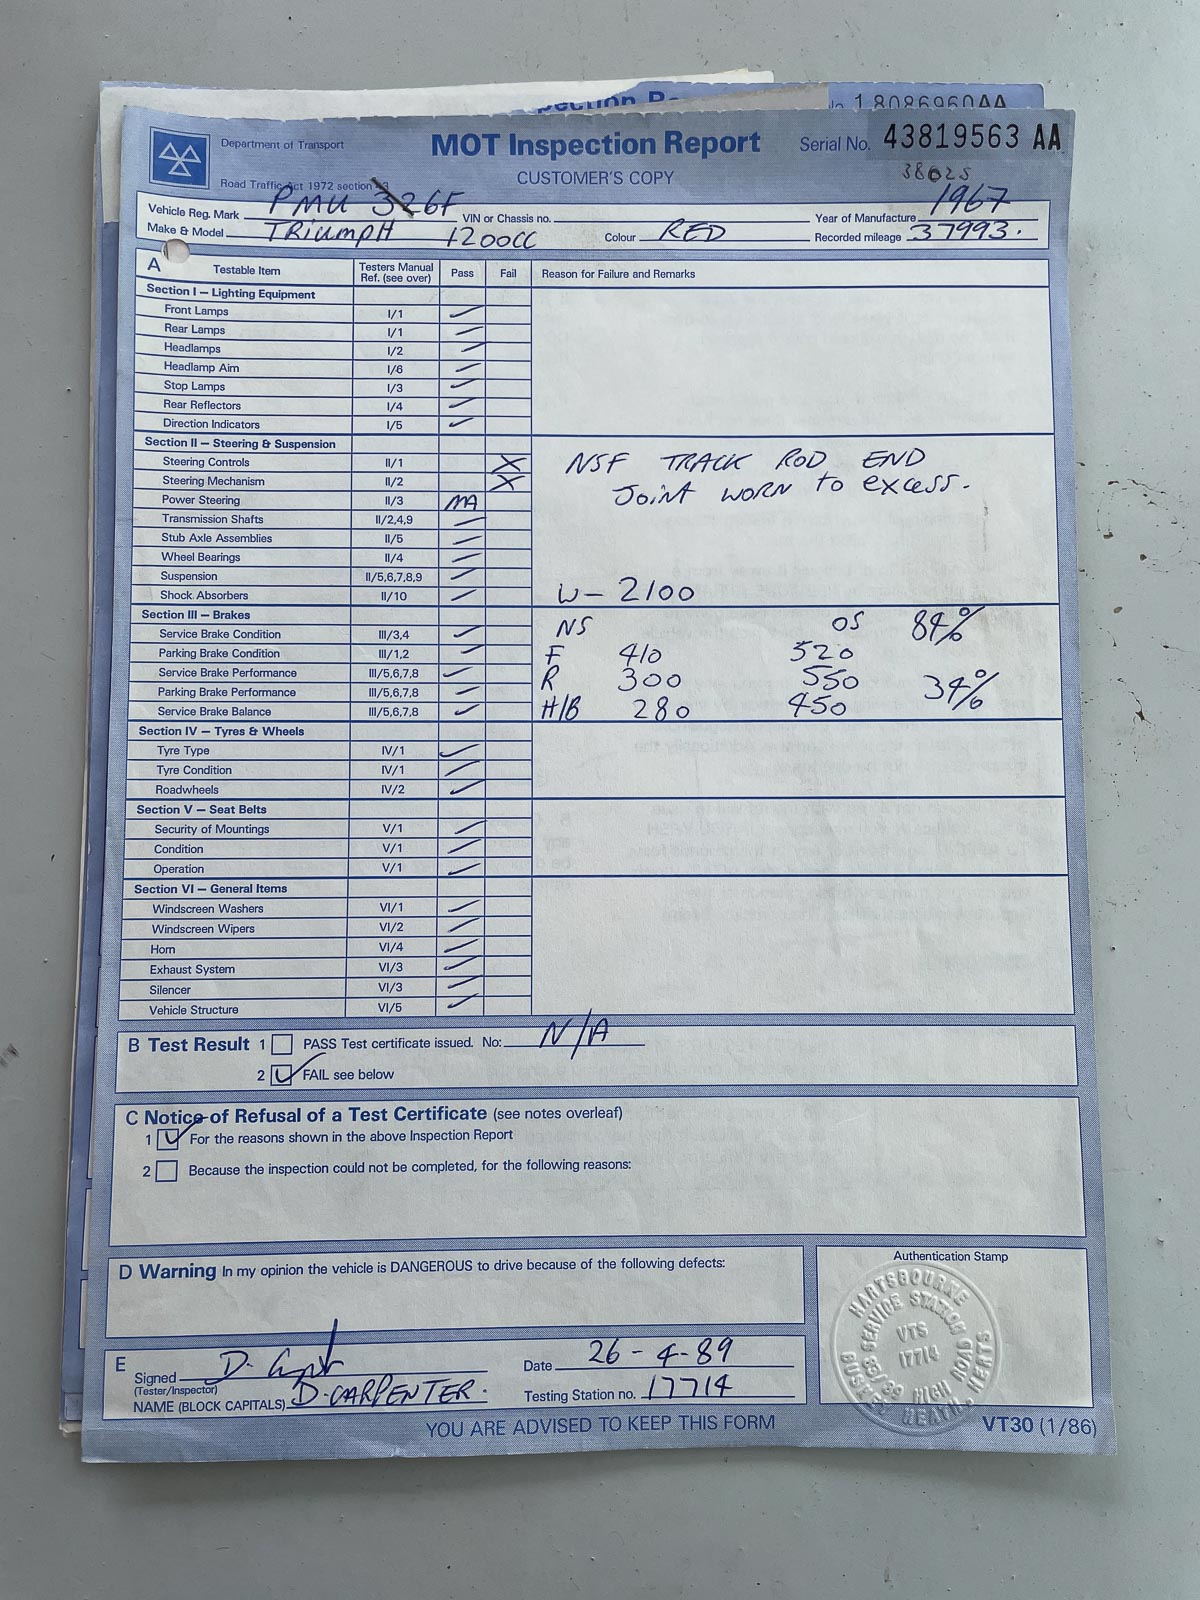 pection Re
1 8086960AA
Department of Transport
MOT Inspection Report
Serial No. 43819563 AA
Road Traffic Act 1972 section
CUSTOMER'S COPY
38025
Vehicle Reg. Mark PMU 326F VIN or Chassis no. Year of Manufacture 1967
Make & Model TRIUMPH 1200CC Colour RED Recorded mileage 37993.
A Testable Item Testers Manual Ref. (see over) Pass Fail Reason for Failure and Remarks
Section I – Lighting Equipment
Front Lamps I/1
Rear Lamps I/1
Headlamps I/2
Headlamp Aim I/6
Stop Lamps I/3
Rear Reflectors I/4
Direction Indicators I/5
Section II – Steering & Suspension
Steering Controls II/1 X NSF TRACK ROD END
Steering Mechanism II/2 X JOINT WORN to excess.
Power Steering II/3 NA
Transmission Shafts II/2,4,9
Stub Axle Assemblies II/5
Wheel Bearings II/4
Suspension II/5,6,7,8,9
Shock Absorbers II/10 W – 2100
Section III – Brakes NS OS 84%
Service Brake Condition III/3,4
Parking Brake Condition III/1,2 F 410 520
Service Brake Performance III/5,6,7,8 R 300 550 34%
Parking Brake Performance III/5,6,7,8
Service Brake Balance III/5,6,7,8 H/B 280 450
Section IV – Tyres & Wheels
Tyre Type IV/1
Tyre Condition IV/1
Roadwheels IV/2
Section V – Seat Belts
Security of Mountings V/1
Condition V/1
Operation V/1
Section VI – General Items
Windscreen Washers VI/1
Windscreen Wipers VI/2
Horn VI/4
Exhaust System VI/3
Silencer VI/3
Vehicle Structure VI/5
B Test Result 1 PASS Test certificate issued. No: N/A
2 FAIL see below
C Notice of Refusal of a Test Certificate (see notes overleaf)
1 For the reasons shown in the above Inspection Report
2 Because the inspection could not be completed, for the following reasons:
D Warning In my opinion the vehicle is DANGEROUS to drive because of the following defects:
Authentication Stamp
HARTSBOURNE SERVICE STATION
VTS
17714
HIGH ROAD
BUSHEY HEATH, HERTS
E Signed Date 26-4-89
(Tester/Inspector)
NAME (BLOCK CAPITALS) D. CARPENTER. Testing Station no. 17714
YOU ARE ADVISED TO KEEP THIS FORM
VT30 (1/86)